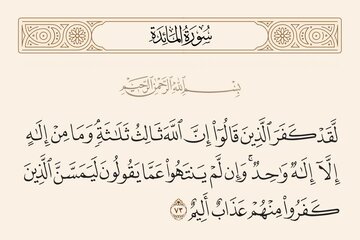 سُورَةُ المَائِدَة
بِسْمِ اللَّهِ الرَّحْمَٰنِ الرَّحِيمِ
لَّقَدْ كَفَرَ ٱلَّذِينَ قَالُوٓا۟ إِنَّ ٱللَّهَ ثَالِثُ ثَلَٰثَةٍۘ وَمَا مِنْ إِلَٰهٍ
إِلَّآ إِلَٰهٌ وَٰحِدٌۚ وَإِن لَّمْ يَنتَهُوا۟ عَمَّا يَقُولُونَ لَيَمَسَّنَّ ٱلَّذِينَ
كَفَرُوا۟ مِنْهُمْ عَذَابٌ أَلِيمٌ ٧٣